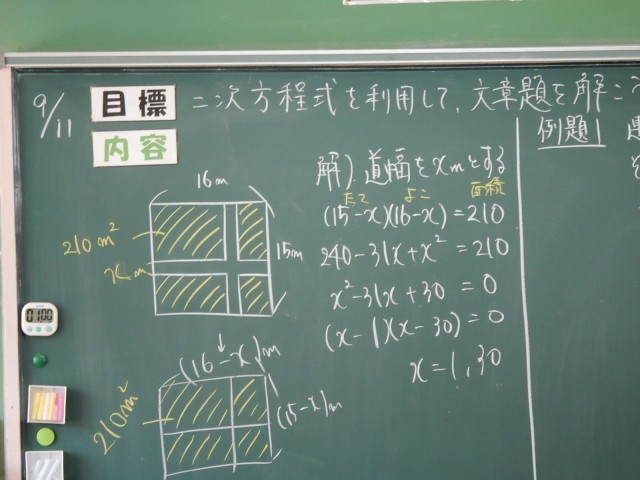 9/11
目標
二次方程式を利用して、文章題を解こう
内容
16m
210m²
xm
15m
(16-x)m
210m²
(15-x)m
解) 道幅をxmとする
たて よこ 面積
(15-x)(16-x)=210
240-31x+x²=210
x²-31x+30=0
(x-1)(x-30)=0
x=1,30
例題1
01:00